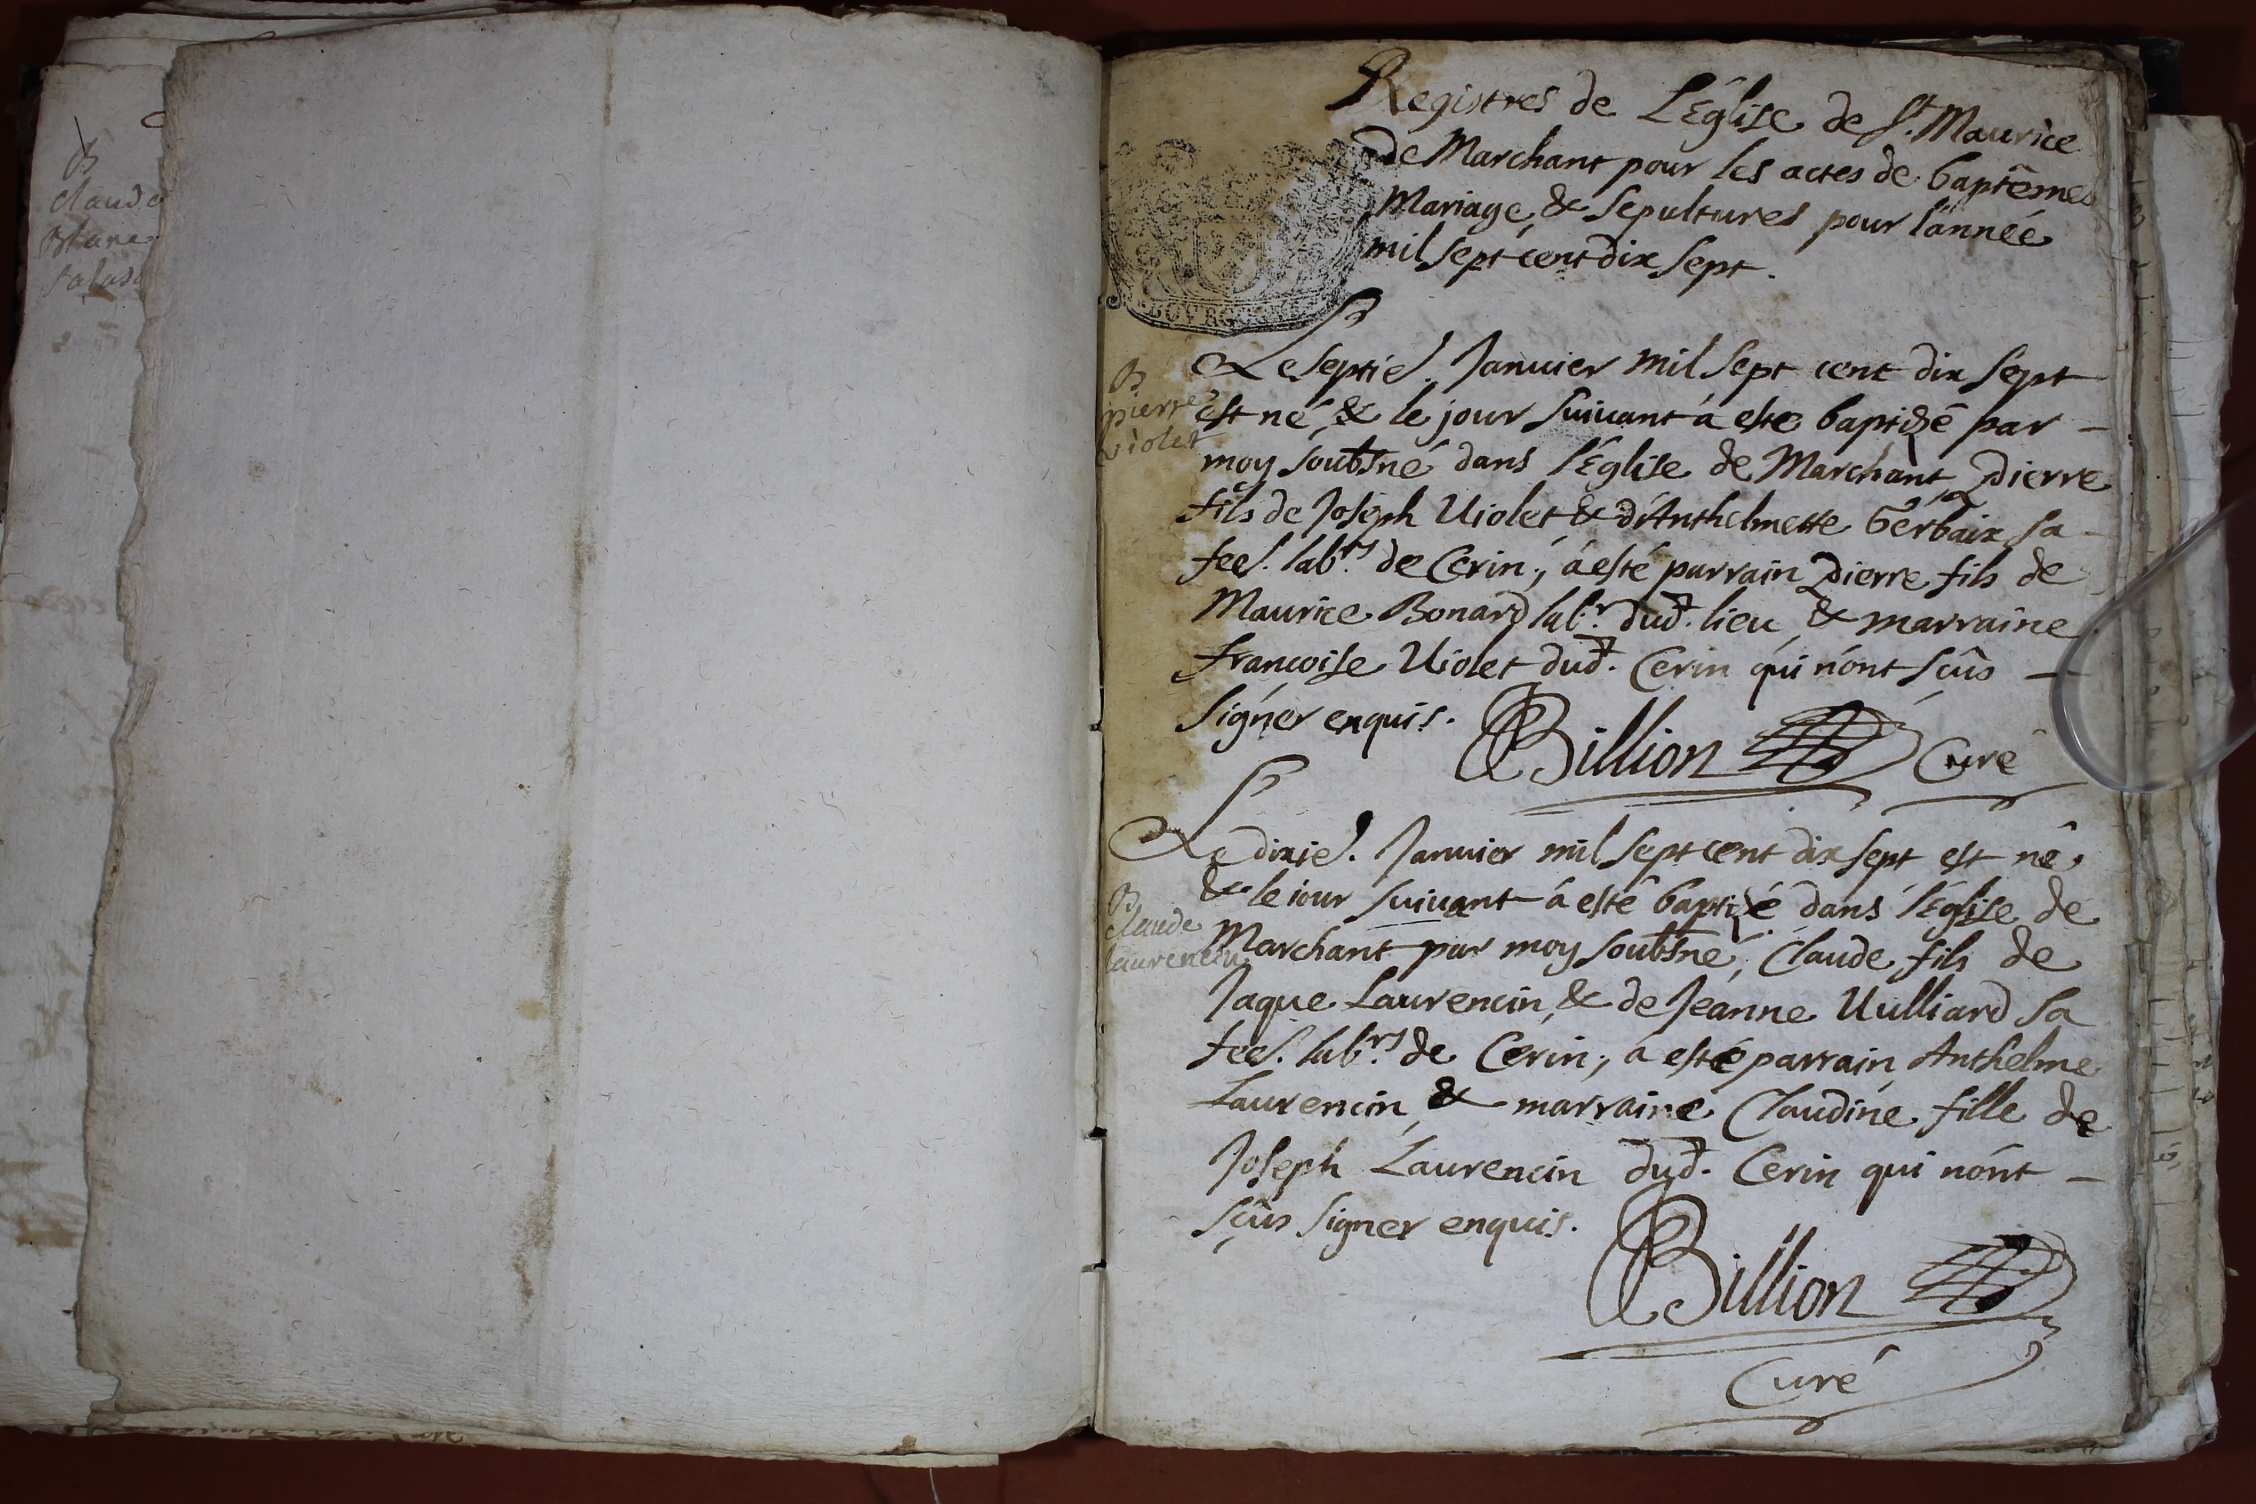 B
claude
Registres de L'Eglise de St. Maurice
de Marchant pour les actes de baptêmes
Mariage, & sepultures pour l'année
mil sept cent dix sept.
B
pierre
violet
Le septie. Januier mil sept cent dix sept
est né, & le jour suiuant á esté baptizé par –
moy soubsné dans l'Eglise de Marchant Pierre
fils de Joseph Uiolet & d'Anthelmette Gerbaix sa –
fee. labrs. de Cerin; á esté parrain Pierre fils de
Maurice Bonard labr. dud. lieu, & marraine
françoise Uiolet dud. Cerin qui n'ont sçûs –
signer enquis.
Billion Curé
B
claude
laurencin
Le dixie. Januier mil sept cent dix sept est né,
& le iour suiuant á esté baptizé dans l'Eglise de
Marchant par moy soubsné, Claude fils de
Jaque Laurencin, & de Jeanne Uulliard sa
fee. labrs. de Cerin; á esté parrain Anthelme
Laurencin, & marraine Claudine fille de
Joseph Laurencin dud. Cerin qui n'ont –
sçûs signer enquis.
Billion
Curé